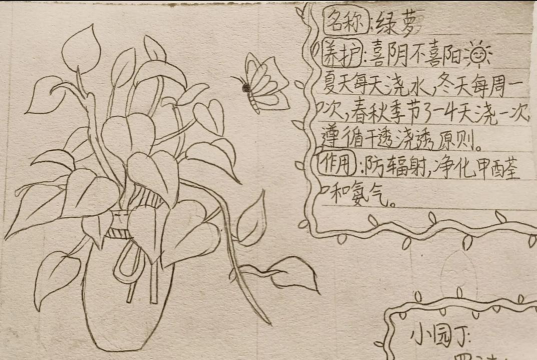 名称:绿萝
养护:喜阴不喜阳
夏天每天浇水,冬天每周一
次,春秋季节3-4天浇一次
遵循干透浇透原则。
作用:防辐射,净化甲醛
和氨气。
小园丁: